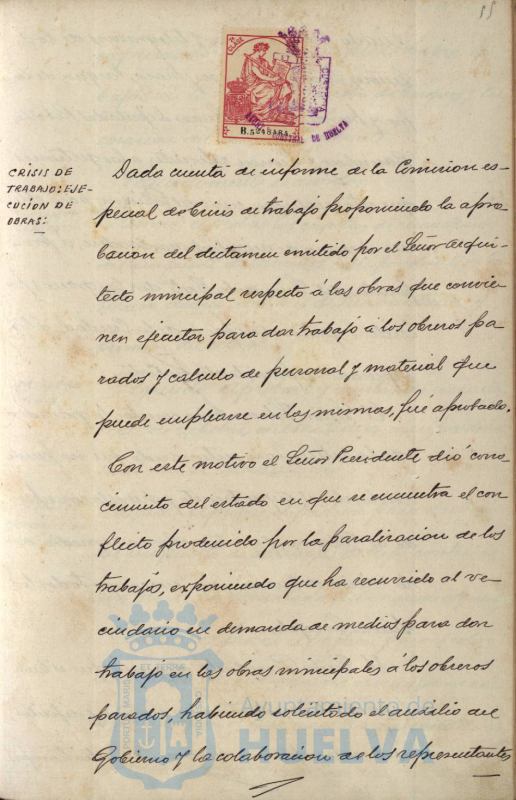 15
11ª CLASE
B.5248484
CENTRAL DE HUELVA
CRISIS DE
TRABAJO: EJE-
CUCION DE
OBRAS:
Dada cuenta de informe de la Comision es-
pecial de Crisis de trabajo proponiendo la apro-
bacion del dictamen emitido por el Señor Arqui-
tecto municipal respecto á las obras que convie-
nen ejecutar para dar trabajo á los obreros pa-
rados y calculo de personal y material que
puede emplearse en las mismas, fué aprobado.
Con este motivo el Señor Presidente dió cono-
cimiento del estado en que se encuentra el con-
flicto producido por la paralizacion de los
trabajos, exponiendo que ha recurrido al ve-
cindario en demanda de medios para dar
trabajo en las obras municipales á los obreros
parados, habiendo solicitado el auxilio del
Gobierno y la colaboracion de los representantes
Ayuntamiento de
HUELVA